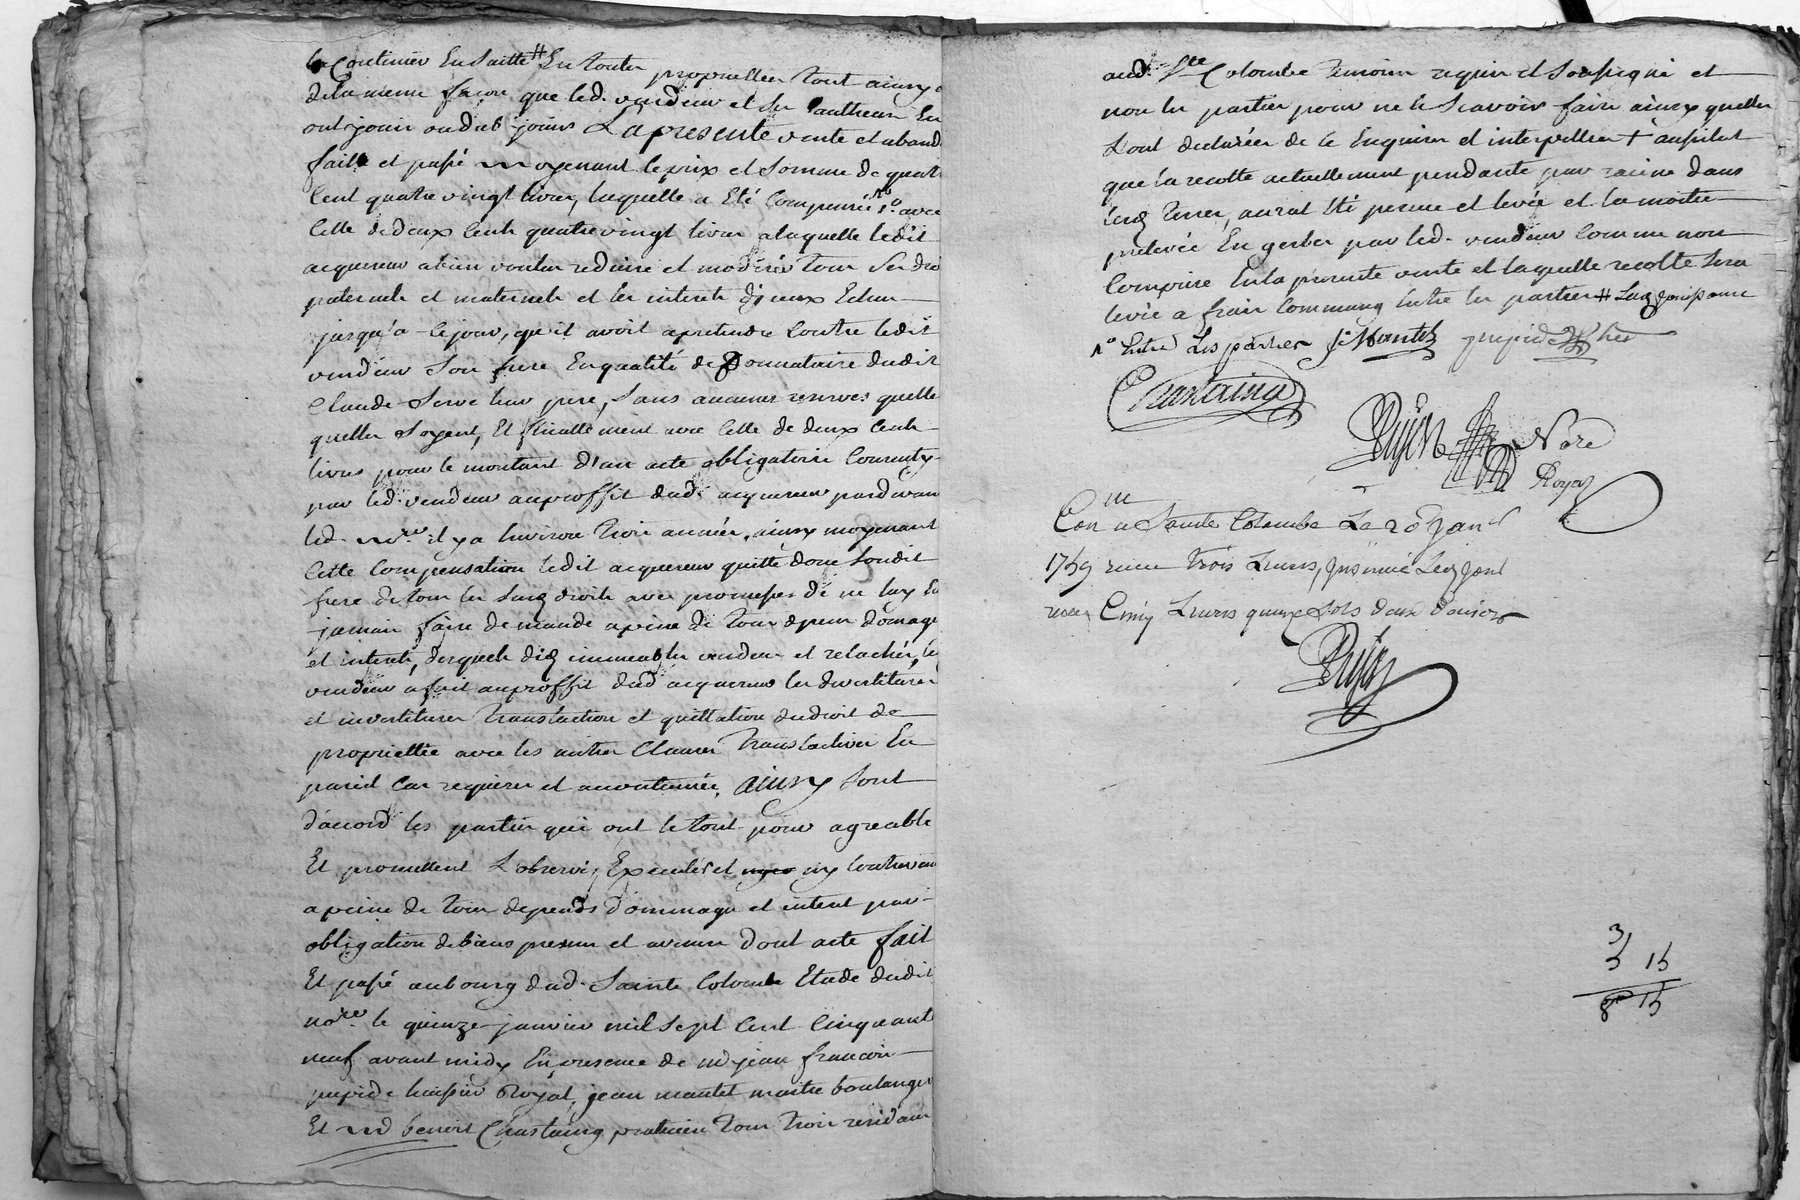 la Continuer Ensuitte # En toutes proprietees tout ainsy
de la meme façon que led. vendeur et ses autheurs En
ont jouir ou dub jouir La presente vente et aband
faitte et passé moyenant le prix et Somme de quatre
Cent quatre vingt livres, laquelle a Eté Compensée 1.° avec
Celle de deux Cent quatre vingt livres a laquelle ledit
acquereur a bien voulu reduire et moderer tous Ses dro
paternels et maternels et les interets d'jceux Echus
jusqu'a ce jour, qu'il avoit a pretendre Contre ledit
vendeur Son frere En qualité de Donnataire dudit
Claude Serve leur pere, Sans aucunes reserves quelle
quelles Soyent, Et finallement avec Celle de deux Cent
livres pour le montant d'un acte obligatoire Consenty
par led. vendeur au proffit dud. acquereur pardevant
led. no.re il y a Environ trois années, ainsy moyenant
Cette Compensation ledit acquereur quitte donc Sondit
frere de tous les Susd droits avec promesses de ne luy En
jamais faire demande a peine de tous depens domage
et interets, desquels dits immeubles vendeus et relachés, le
vendeur a fait au proffit dud acquereur les devestitures
et investitures translaction et quittation du droit de
propriettée avec les autres Clauses translatives En
pareil Cas requises et accoutumées, ainsy Sont
d'accord les parties qui ont le tout pour agreable
Et promettent L'observer, Executer et n'y Contreven
a peine de tous depends dommages et interet par
obligation de biens presens et avenir Dont acte fait
Et passé au bourg dud. Sainte Colombe Etude dudit
no.re le quinze janvier mil Sept Cent Cinquante
neuf avant midy En presence de m.r jean francois
pupide huissier Royal, jean mantet maitre boulanger
Et md benoit Chastaing praticien tous trois residans
aud. Ste Colombe temoins requis et Soussignés et
non les parties pour ne le Scavoir faire ainsy quelles
l'ont declarées de ce Enquises et interpellées + aussitot
que la recolte actuellement pendante par racine dans
lesd terres, aurat Eté percue et levée et la moitié
prelevée En gerbes par led. vendeur Comme non
Comprise En la presente vente et laquelle recolte Sera
levée a frais Communs Entre les parties #
n° Entre Les parties J: Mantet pupide
Chastaing
Dujon Nore
Royal
Con.lle a Sainte Colombe Le 29 janv
1759 receu trois Livres, Insinué Led jour
receu Cinq Livres quinze sols
Dujon
3
5 15
8 15